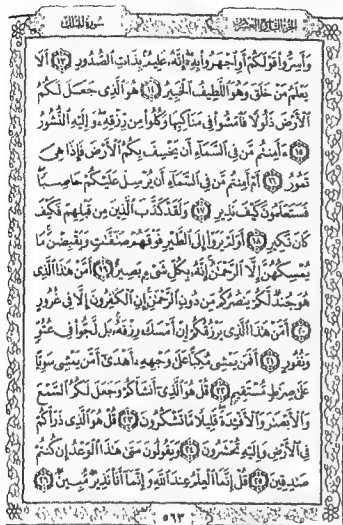 سورة الملك
الجزء التاسع والعشرون
وَأَسِرُّوا۟ قَوْلَكُمْ أَوِ ٱجْهَرُوا۟ بِهِۦٓ إِنَّهُۥ عَلِيمٌۢ بِذَاتِ ٱلصُّدُورِ ﴿١٣﴾ أَلَا
يَعْلَمُ مَنْ خَلَقَ وَهُوَ ٱللَّطِيفُ ٱلْخَبِيرُ ﴿١٤﴾ هُوَ ٱلَّذِى جَعَلَ لَكُمُ
ٱلْأَرْضَ ذَلُولًا فَٱمْشُوا۟ فِى مَنَاكِبِهَا وَكُلُوا۟ مِن رِّزْقِهِۦ وَإِلَيْهِ ٱلنُّشُورُ
﴿١٥﴾ ءَأَمِنتُم مَّن فِى ٱلسَّمَآءِ أَن يَخْسِفَ بِكُمُ ٱلْأَرْضَ فَإِذَا هِىَ
تَمُورُ ﴿١٦﴾ أَمْ أَمِنتُم مَّن فِى ٱلسَّمَآءِ أَن يُرْسِلَ عَلَيْكُمْ حَاصِبًا
فَسَتَعْلَمُونَ كَيْفَ نَذِيرِ ﴿١٧﴾ وَلَقَدْ كَذَّبَ ٱلَّذِينَ مِن قَبْلِهِمْ فَكَيْفَ
كَانَ نَكِيرِ ﴿١٨﴾ أَوَلَمْ يَرَوْا۟ إِلَى ٱلطَّيْرِ فَوْقَهُمْ صَٰٓفَّٰتٍ وَيَقْبِضْنَ مَا
يُمْسِكُهُنَّ إِلَّا ٱلرَّحْمَٰنُ إِنَّهُۥ بِكُلِّ شَىْءٍۭ بَصِيرٌ ﴿١٩﴾ أَمَّنْ هَٰذَا ٱلَّذِى
هُوَ جُندٌ لَّكُمْ يَنصُرُكُم مِّن دُونِ ٱلرَّحْمَٰنِ إِنِ ٱلْكَٰفِرُونَ إِلَّا فِى غُرُورٍ
﴿٢٠﴾ أَمَّنْ هَٰذَا ٱلَّذِى يَرْزُقُكُمْ إِنْ أَمْسَكَ رِزْقَهُۥ بَل لَّجُّوا۟ فِى عُتُوٍّ
وَنُفُورٍ ﴿٢١﴾ أَفَمَن يَمْشِى مُكِبًّا عَلَىٰ وَجْهِهِۦٓ أَهْدَىٰٓ أَمَّن يَمْشِى سَوِيًّا
عَلَىٰ صِرَٰطٍ مُّسْتَقِيمٍ ﴿٢٢﴾ قُلْ هُوَ ٱلَّذِىٓ أَنشَأَكُمْ وَجَعَلَ لَكُمُ ٱلسَّمْعَ
وَٱلْأَبْصَٰرَ وَٱلْأَفْـِٔدَةَ قَلِيلًا مَّا تَشْكُرُونَ ﴿٢٣﴾ قُلْ هُوَ ٱلَّذِى ذَرَأَكُمْ
فِى ٱلْأَرْضِ وَإِلَيْهِ تُحْشَرُونَ ﴿٢٤﴾ وَيَقُولُونَ مَتَىٰ هَٰذَا ٱلْوَعْدُ إِن كُنتُمْ
صَٰدِقِينَ ﴿٢٥﴾ قُلْ إِنَّمَا ٱلْعِلْمُ عِندَ ٱللَّهِ وَإِنَّمَآ أَنَا۠ نَذِيرٌ مُّبِينٌ ﴿٢٦﴾
٥٦٣